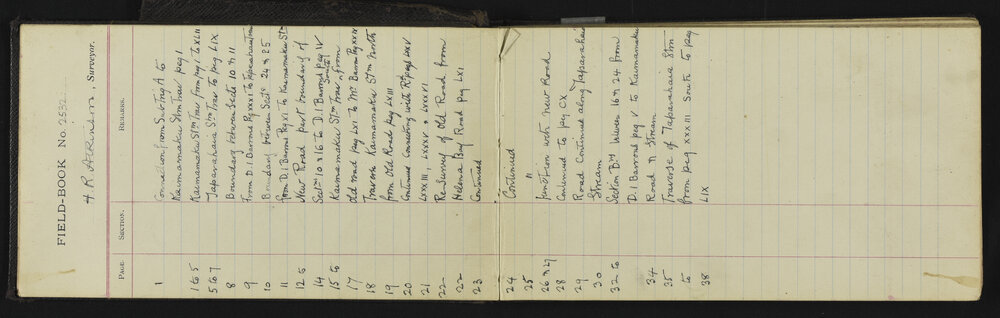 FIELD-BOOK No. 2532
H. R. Atkinson, Surveyor.
PAGE. SECTION. REMARKS.
1 Connection from Sub Trig A to
Kaimamaku Stm Trav peg 1
1 to 5 Kaimamaku Stm Trav from peg 1 to XLII
5 to 7 Taparahaia Stm Trav to peg LIX
8 Boundary between Sects 10 & 11
9 From D.I Barrons Pg XXXI to
10 Boundary between Sects 24 & 25
11 From D.I Barrons Pg XI to Kaimamaku Stm
12 to New Road part boundary of
14 Sectns 10 & 16 to D.I Barrons peg IV
15 to Kaimamaku Stm Trav from
17 old road peg LXI to Mr Barrons Pg XXIX
18 Traverse Kaimamaku Stm North
19 from Old Road peg LXIII
20 Continued Connecting with Rd pegs LXXV
21 LXXXIII, LXXXV & LXXXVI
22 Re Survey of Old Road from
22 Helena Bay Road Peg LXI
23 Continued
24 Continued
25 "
26 & 27 Junction with New Road
28 Continued to peg CX
29 Road Continued along Taparahaia
30 Stream
32 to Section Bdy between 16 & 24 from
D.I Barrons peg V to Kaimamaku
34 Road & Stream
35 Traverse of Taparahaia Stm
to from peg XXXIII South to peg
38 LIX